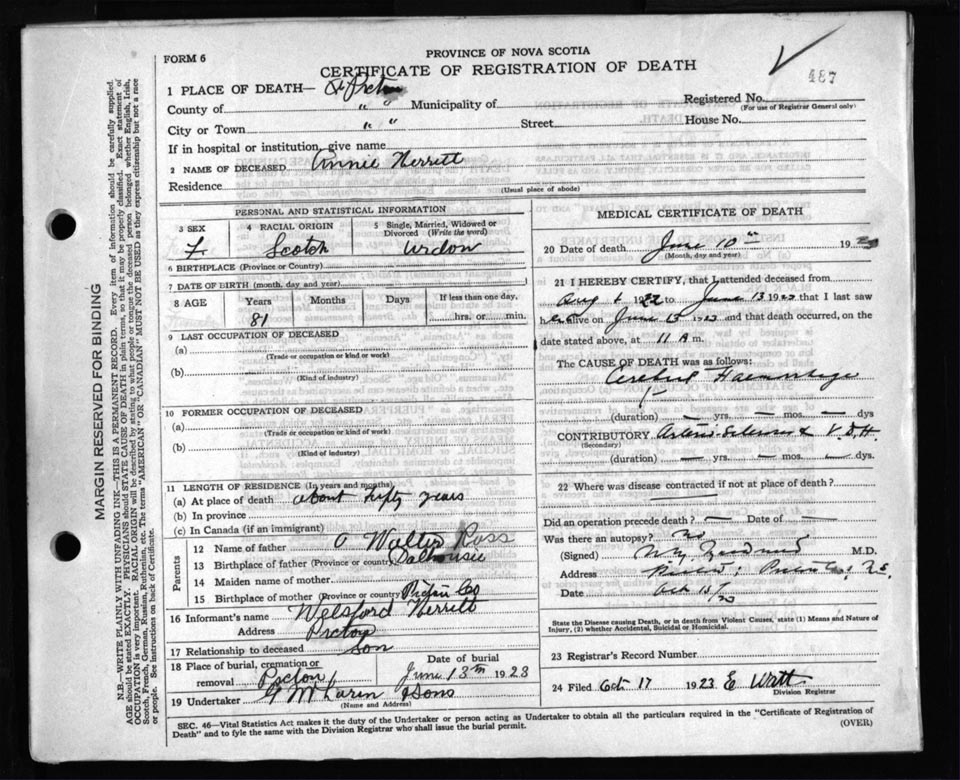 FORM 6
PROVINCE OF NOVA SCOTIA
CERTIFICATE OF REGISTRATION OF DEATH
487
1 PLACE OF DEATH— Pictou
County of " " Municipality of
Registered No.
(For use of Registrar General only)
City or Town " " Street House No.
If in hospital or institution, give name
2 NAME OF DECEASED Annie Herrett
Residence
(Usual place of abode)
MARGIN RESERVED FOR BINDING
N.B.—WRITE PLAINLY WITH UNFADING INK—THIS IS A PERMANENT RECORD. Every item of information should be carefully supplied.
AGE should be stated EXACTLY. PHYSICIANS should STATE CAUSE OF DEATH in plain terms, so that it may be properly classified. Exact statement of
OCCUPATION is very important. RACIAL ORIGIN will be described by stating to what people or tongue the deceased person belonged whether English, Irish,
Scotch, French, German, Russian, Ruthenian, etc. The terms "AMERICAN" or "CANADIAN" MUST NOT BE USED as they express citizenship but not a race
or people. See instructions on back of Certificate.
PERSONAL AND STATISTICAL INFORMATION
3 SEX
F
4 RACIAL ORIGIN
Scotch
5 Single, Married, Widowed or
Divorced (Write the word)
Widow
6 BIRTHPLACE (Province or Country)
7 DATE OF BIRTH (month, day, and year)
8 AGE Years Months Days If less than one day,
81 hrs. or min.
9 LAST OCCUPATION OF DECEASED
(a)
(Trade or occupation or kind or work)
(b)
(Kind of industry)
10 FORMER OCCUPATION OF DECEASED
(a)
(Trade or occupation or kind of work)
(b)
(Kind of industry)
11 LENGTH OF RESIDENCE (In years and months)
(a) At place of death about fifty years
(b) In province
(c) In Canada (if an immigrant)
Parents
12 Name of father Walter Ross
13 Birthplace of father (Province or country) Dalhousie
14 Maiden name of mother
15 Birthplace of mother (Province or country) Pictou Co
16 Informant's name Welsford Herrett
Address Pictou
17 Relationship to deceased son
18 Place of burial, cremation or
removal Pictou
Date of burial
June 13th 1923
19 Undertaker G McLaren & Sons
(Name and Address)
MEDICAL CERTIFICATE OF DEATH
20 Date of death June 10th 1923
(Month, day and year)
21 I HEREBY CERTIFY, that I attended deceased from
Aug 1922 to June 13 1923 that I last saw
her alive on June 13 1923 and that death occurred, on
date stated above, at 11 A m.
The CAUSE OF DEATH was as follows:
Cerebral Haemorrhage
(duration) — yrs. — mos. — dys
CONTRIBUTORY Arterio-Sclerosis & V.D.H.
(Secondary)
(duration) — yrs. — mos. — dys.
22 Where was disease contracted if not at place of death?
Did an operation precede death? — Date of —
Was there an autopsy? No
(Signed) M.D.
Address
Date Oct
State the Disease causing Death, or in death from Violent Causes, state (1) Means and Nature of
Injury, (2) whether Accidental, Suicidal or Homicidal.
23 Registrar's Record Number
24 Filed Oct 17 1923 E Watt
Division Registrar
SEC. 46—Vital Statistics Act makes it the duty of the Undertaker or person acting as Undertaker to obtain all the particulars required in the "Certificate of Registration of
Death" and to fyle the same with the Division Registrar who shall issue the burial permit.
(OVER)